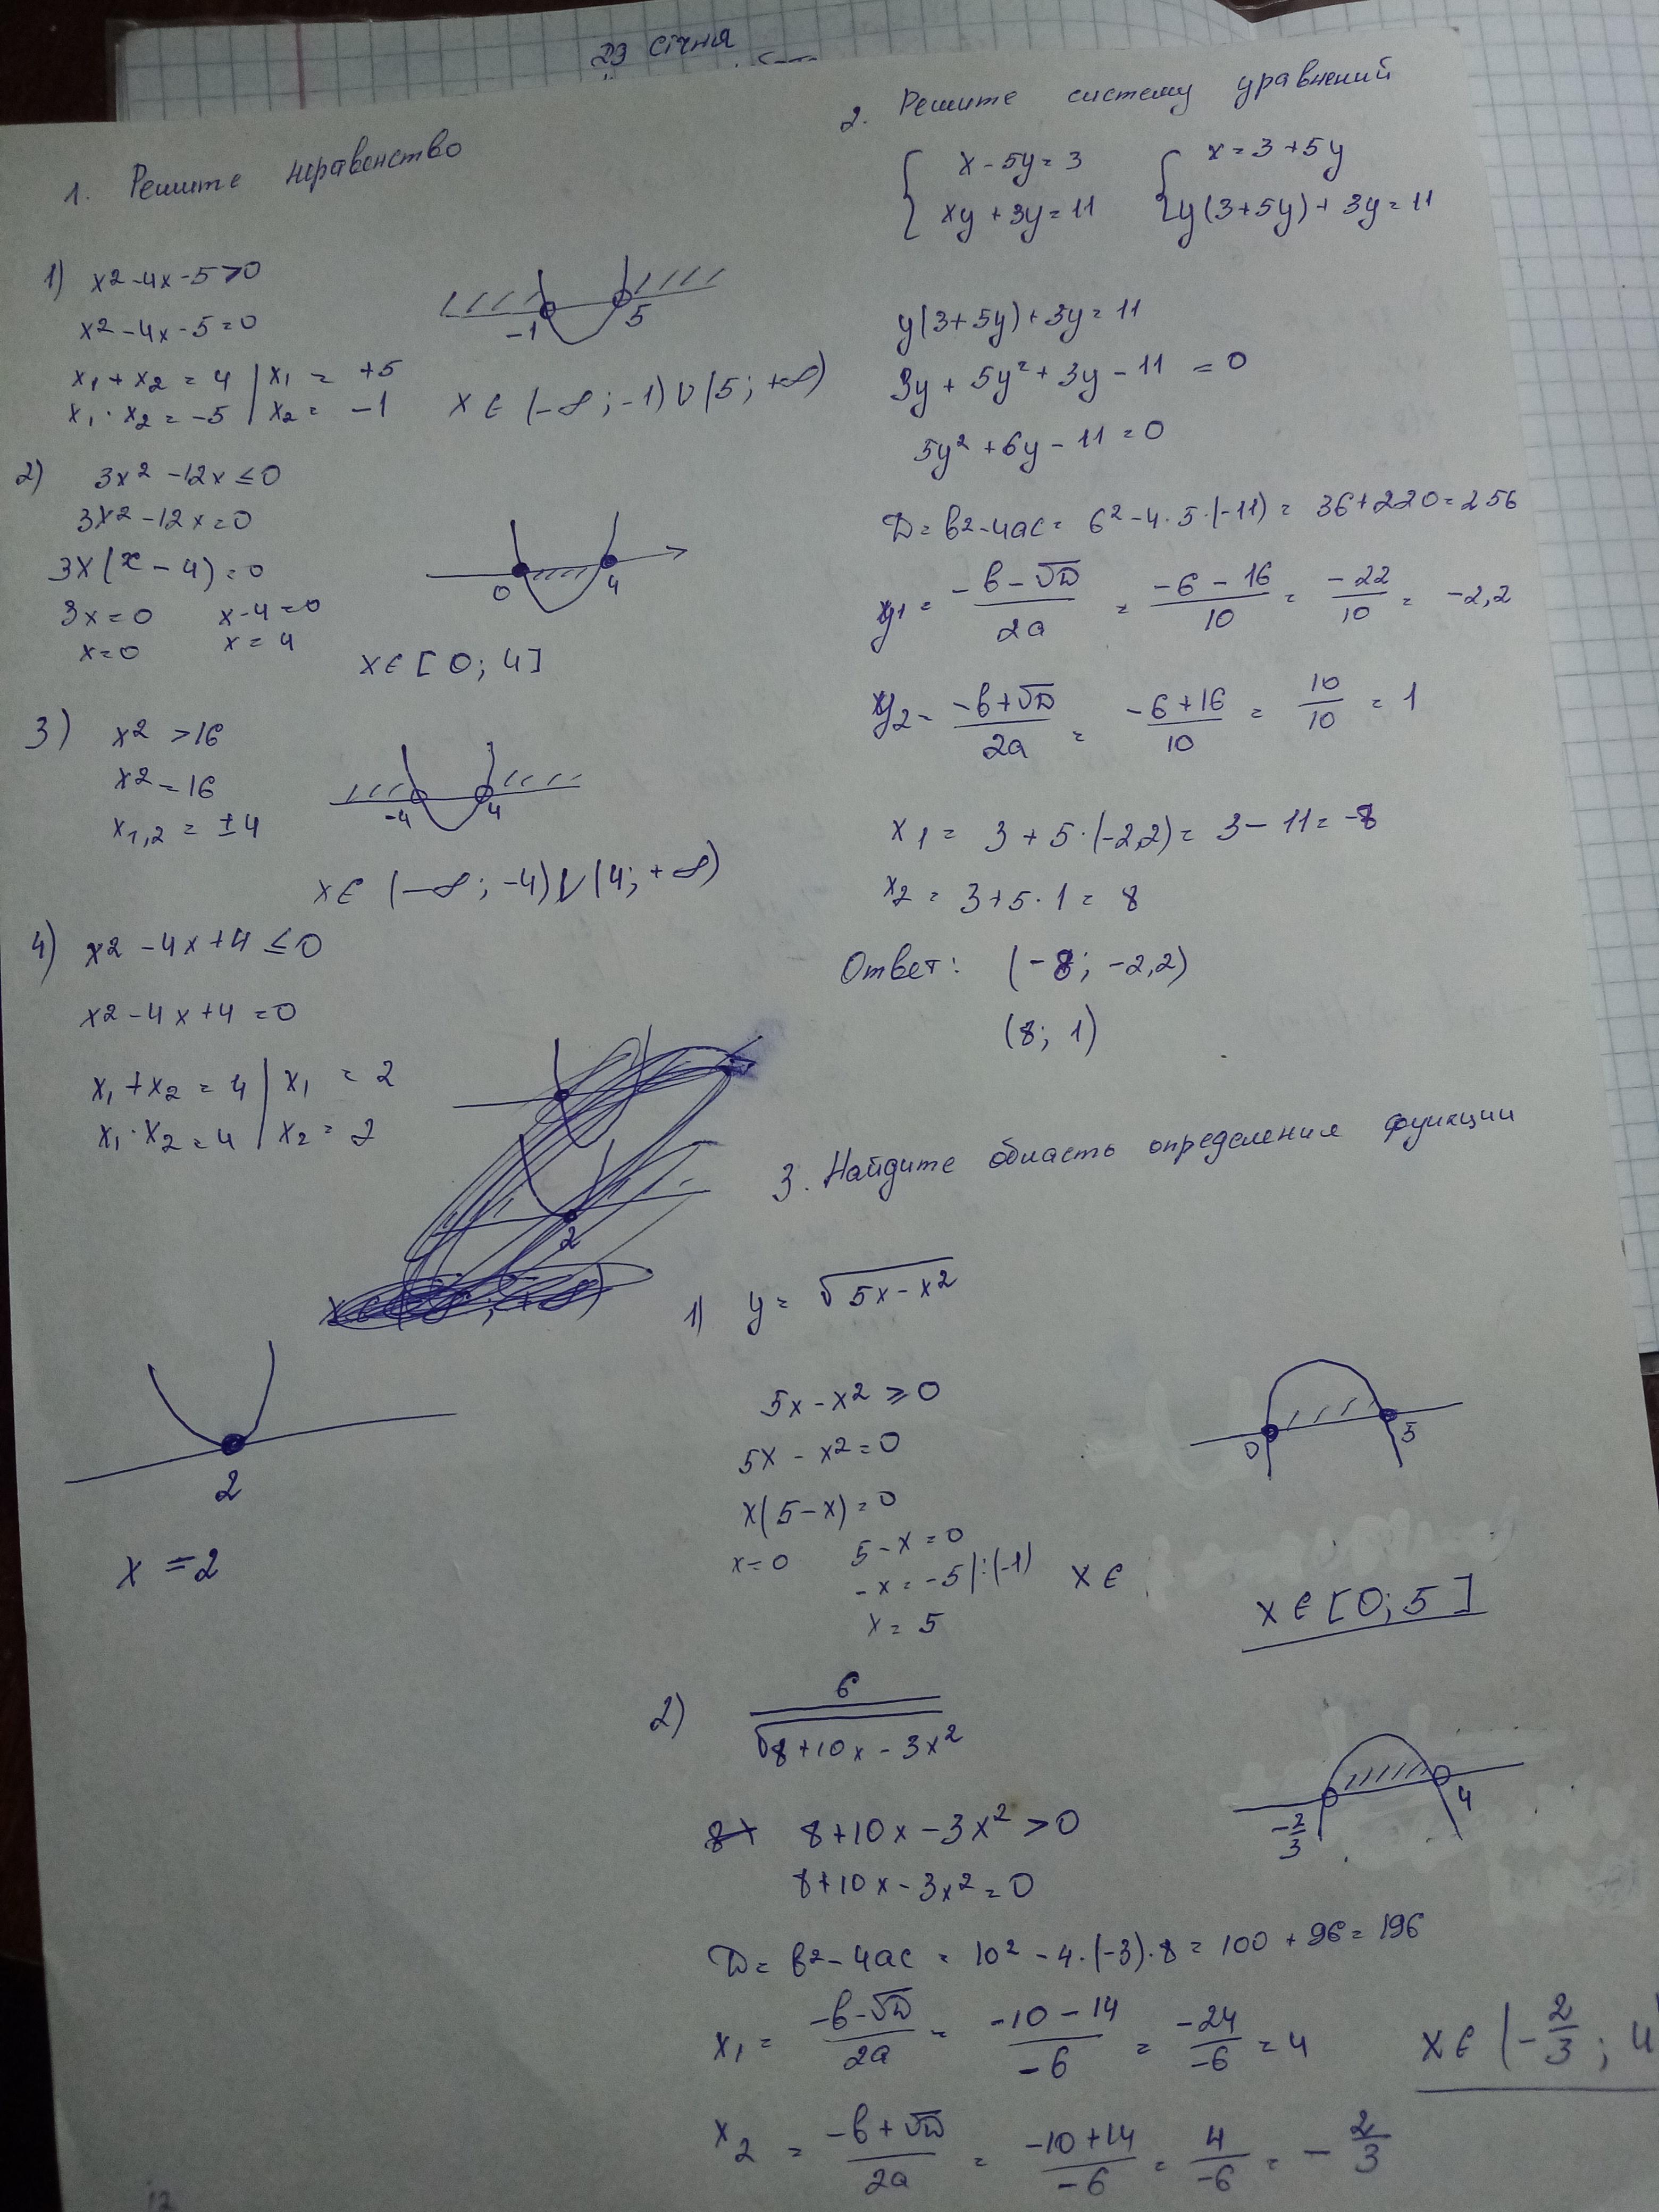 23 січня
1. Решите неравенство
1) x2 - 4x - 5 > 0
x2 - 4x - 5 = 0
x1 + x2 = 4 | x1 = +5
x1 · x2 = -5 | x2 = -1
-1 5
x ∈ (-∞; -1) ∪ (5; +∞)
2) 3x2 - 12x ≤ 0
3x2 - 12x = 0
3x(x - 4) = 0
3x = 0 x - 4 = 0
x = 0 x = 4
0 4
x ∈ [0; 4]
3) x2 > 16
x2 = 16
x1,2 = ±4
-4 4
x ∈ (-∞; -4) ∪ (4; +∞)
4) x2 - 4x + 4 ≤ 0
x2 - 4x + 4 = 0
x1 + x2 = 4 | x1 = 2
x1 · x2 = 4 | x2 = 2
2
2
x = 2
2. Решите систему уравнений
{ x - 5y = 3 { x = 3 + 5y
xy + 3y = 11 y(3 + 5y) + 3y = 11
y(3 + 5y) + 3y = 11
3y + 5y² + 3y - 11 = 0
5y² + 6y - 11 = 0
D = b2 - 4ac = 6² - 4 · 5 · (-11) = 36 + 220 = 256
y1 = (-b - √D)/2a = (-6 - 16)/10 = -22/10 = -2,2
y2 = (-b + √D)/2a = (-6 + 16)/10 = 10/10 = 1
x1 = 3 + 5 · (-2,2) = 3 - 11 = -8
x2 = 3 + 5 · 1 = 8
Ответ: (-8; -2,2)
(8; 1)
3. Найдите область определения функции
1) y = √(5x - x²)
5x - x² ≥ 0
5x - x² = 0
x(5 - x) = 0
x = 0 5 - x = 0
-x = -5 |:(-1)
x = 5
0 5
x ∈
x ∈ [0; 5]
2) 6/√(8 + 10x - 3x²)
8 + 10x - 3x² > 0
8 + 10x - 3x² = 0
-2/3 4
D = b² - 4ac = 10² - 4 · (-3) · 8 = 100 + 96 = 196
x1 = (-b - √D)/2a = (-10 - 14)/-6 = -24/-6 = 4
x ∈ (-2/3; 4
x2 = (-b + √D)/2a = (-10 + 14)/-6 = 4/-6 = -2/3